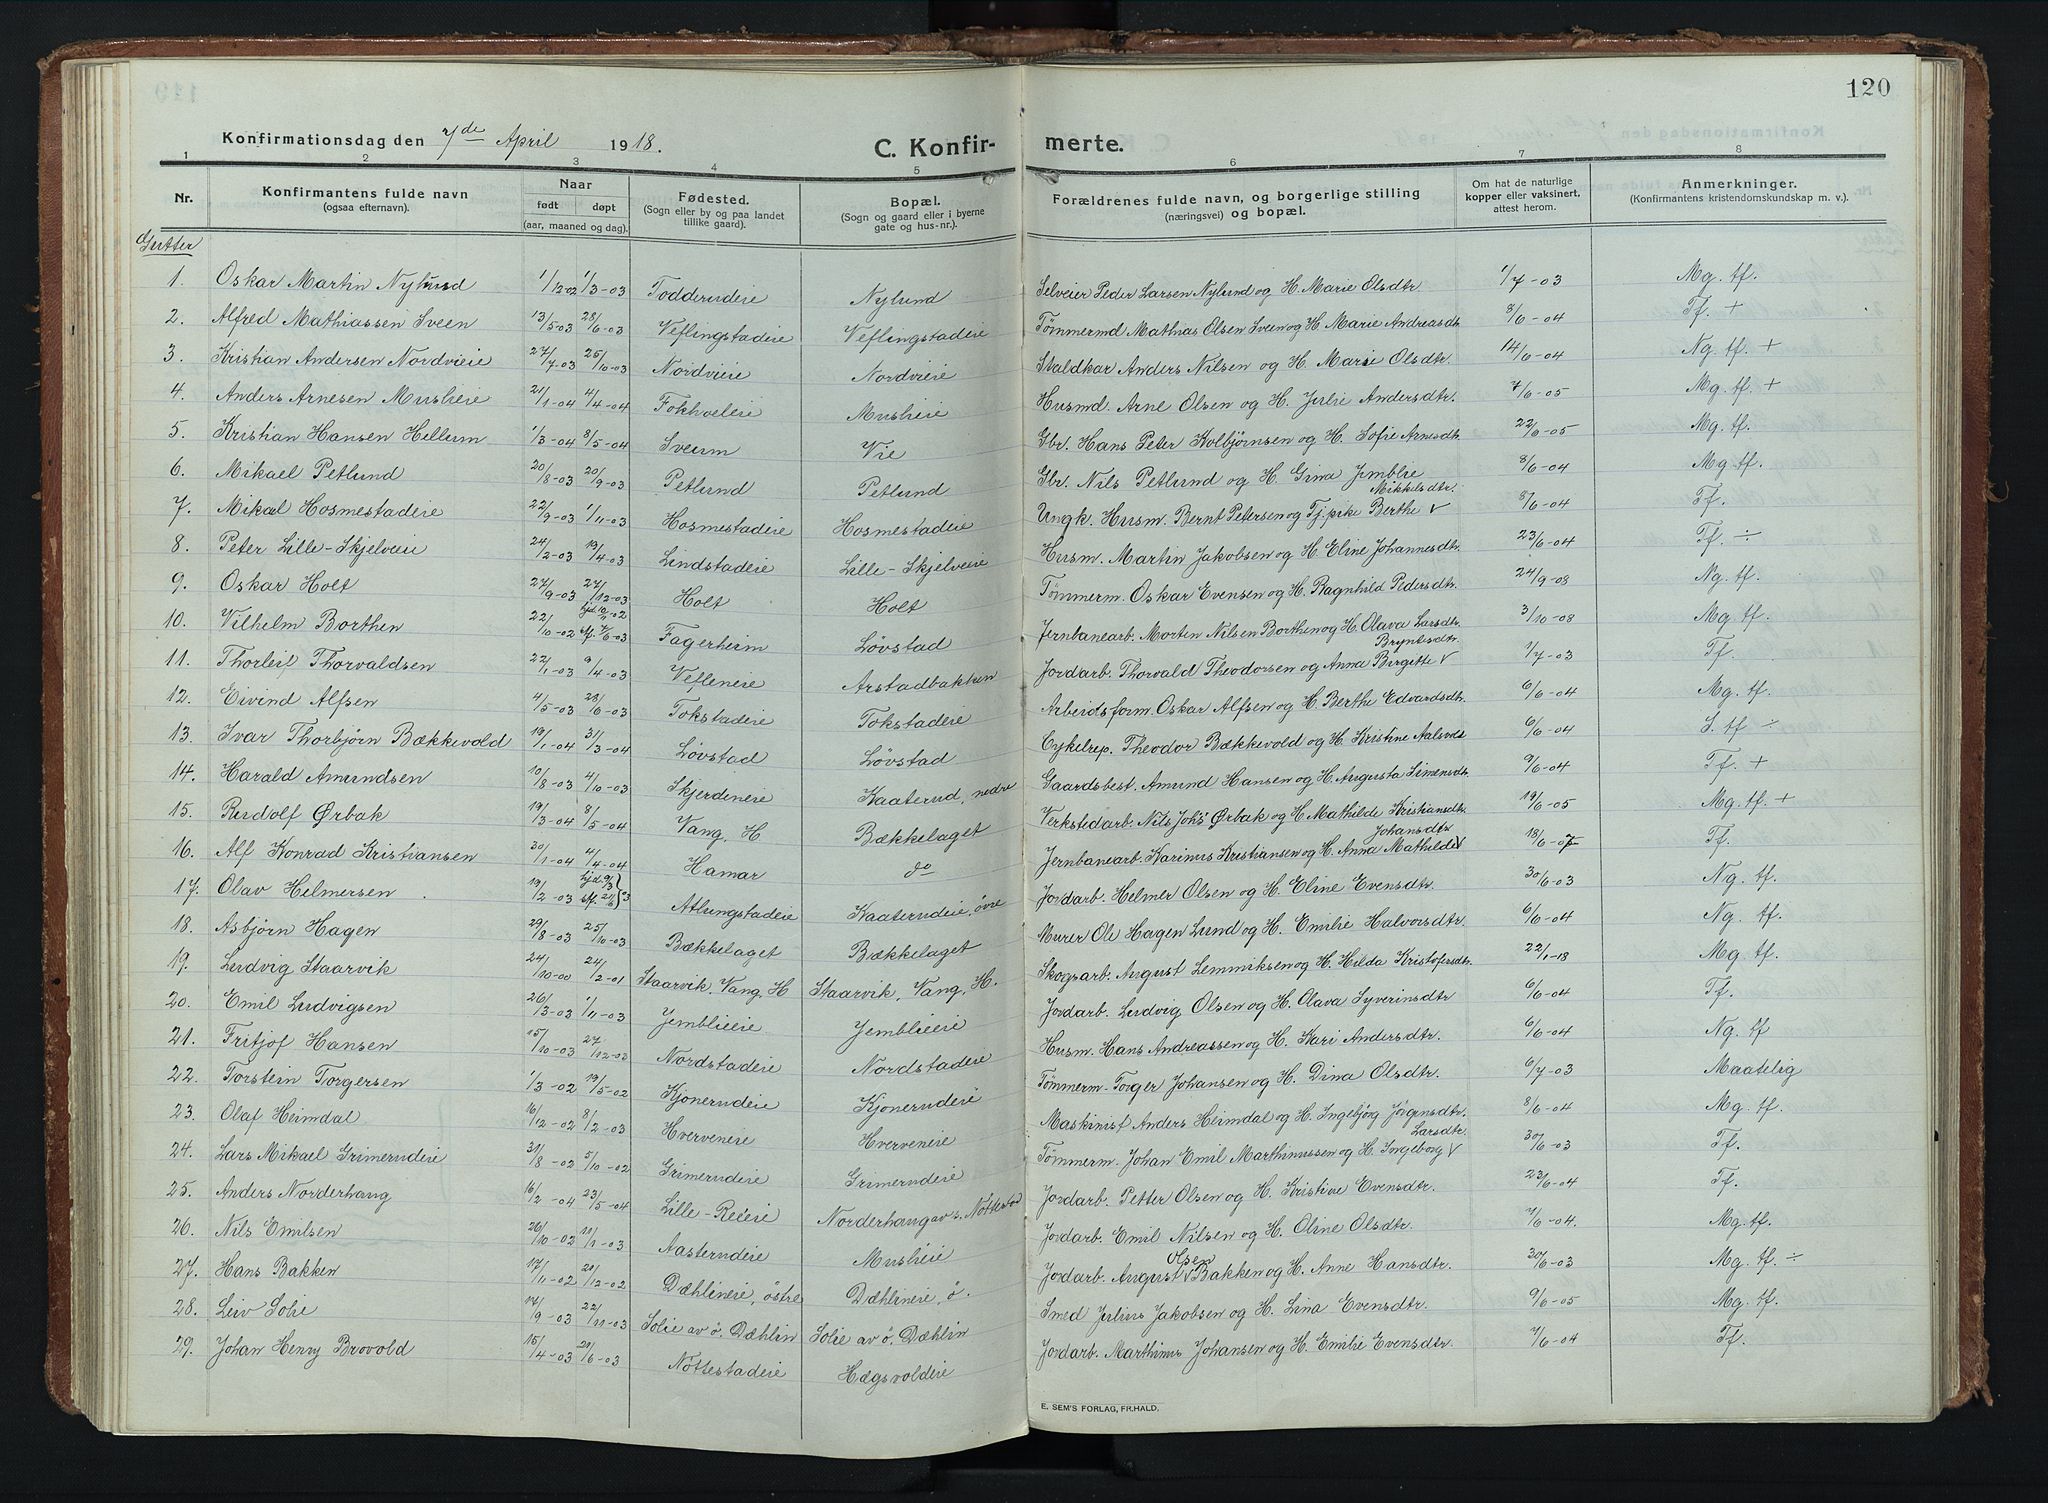 120
Konfirmationsdag den 7de April 1918.
C. Konfirmerte.
1 2 3 4 5 6 7 8
Nr. | Konfirmantens fulde navn (ogsaa efternavn). | Naar født døpt (aar, maaned og dag). | Fødested. (Sogn eller by og paa landet tillike gaard). | Bopæl. (Sogn og gaard eller i byerne gate og hus-nr.). | Forældrenes fulde navn, og borgerlige stilling (næringsvei) og bopæl. | Om hat de naturlige kopper eller vaksinert, attest herom. | Anmerkninger. (Konfirmantens kristendomskundskap m. v.).
Gutter
1. Oskar Martin Nylund 1/12 02 1/3-03 Todderudeie Nylund Selveier Peder Larsen Nylund og H. Marie Olsdtr 1/7-03 Mg. tf.
2. Alfred Mathiassen Sveen 13/5-03 28/6-03 Veflingstadeie Veflingstadeie Tømmermd Mathias Olsen Sveen og H. Marie Andreasdtr 3/6-04 Tf. +
3. Kristian Andersen Nordvieie 27/7-03 25/10-03 Nordvieie Nordvieie Staldkar Anders Nilsen og H. Marie Olsdtr. 14/6-04 Ng. tf. +
4. Anders Arnesen Muslieie 21/1-04 4/4-04 Fokhveleie Muslieie Husmd. Arne Olsen og H. Julie Andersdtr. 7/6-05 Mg. tf. +
5. Kristian Hansen Hellum 1/3-04 8/5-04 Sveum Vie Gbr. Hans Peter Kolbjørnsen og H. Sofie Arnesdtr 22/6-05 Mg. tf.
6. Mikael Petlund 20/8-03 20/9-03 Petlund Petlund Gbr. Nils Petlund og H. Gina Jemblie 8/6-04 Mg. tf.
7. Mikal Hosmestadeie 22/9-03 1/11-03 Hosmestadeie Hosmestadeie Ungk. Husm. Bernt Petersen og Tj.pike Berthe V Mikkelsdtr. 8/6-04 Tf.
8. Peter Lille-Skjelveie 24/2-03 19/4-03 Lindstadeie Lille-Skjelveie Husm. Martin Jakobsen og H. Eline Johannesdtr. 23/6-04 Tf. ÷
9. Oskar Holt 27/9-03 27/12-03 Holt Holt Tømmerm. Oskar Evensen og H. Ragnhild Pedersdtr. 24/9-08 Ng. tf.
10. Vilhelm Borthen 22/10-02 Fagerheim Løvstad Jernbanearb. Morten Nilsen Borthen og H. Olava Larsdtr. 3/10-08 Mg. tf.
11. Thorleif Thorvaldsen 22/1-03 9/4-03 Vefleneie Arstadbakken Jordarb. Thorvald Theodorsen og Anna Birgitte V Bryntesdtr. 1/7-03 Tf.
12. Eivind Alfsen 4/5-03 28/6-03 Tokstadeie Tokstadeie Arbeidsform. Oskar Alfsen og H. Berthe Edvardsdtr. 6/6-04 Mg. tf.
13. Ivar Thorbjørn Bækkevold 19/1-04 31/3-04 Løvstad Løvstad Cykelrep. Theodor Bækkevold og H. Kristine 6/6-04 S. tf ÷
14. Harald Amundsen 10/8-03 4/10-03 Skjerdineie Kaaterud, nedre Gaardsbest. Amund Hansen og H. Augusta Simensdtr. 9/6-04 Tf. +
15. Rudolf Ørbak 19/3-04 8/5-04 Vang, H. Bækkelaget Verkstedarb. Nils Johs Ørbak og H. Mathilde Kristiansdtr. 19/6-05 Mg. tf. +
16. Alf Konrad Kristiansen 20/1-04 4/4-04 Hamar do Jernbanearb. Karinus Kristiansen og H. Anna Mathilde V Johansdtr 18/6-07 Tf.
17. Olav Helmersen 19/2-03 Atlungstadeie Kaaterudeie, øvre Jordarb. Helmer Olsen og H. Eline Evensdtr. 30/6-03 Ng. tf.
18. Asbjørn Hagen 29/8-03 25/10-03 Bækkelaget Bækkelaget Murer Ole Hagen Lund og H. Emilie Halvorsdtr. 6/6-04 Ng. tf.
19. Ludvig Staarvik 24/10-00 24/2-01 Staarvik, Vang, H Staarvik, Vang, H. Skogsarb. August Lemmiksen og H. Hilda Kristofersdtr. 22/1-18 Mg. tf.
20. Emil Ludvigsen 26/3-03 1/11-03 Jemblieeie Jemblieeie Jordarb. Ludvig Olsen og H. Olava Syverinsdtr 6/6-04 Tf.
21. Fritjof Hansen 15/10-03 27/12-03 Nordstadeie Nordstadeie Husm. Hans Andreassen og H. Kari Andersdtr. 6/6-04 Ng. tf
22. Torstein Torgersen 1/3-02 19/5-02 Kjonerudeie Kjonerudeie Tømmerm. Torger Johansen og H. Dina Olsdtr. 6/7-03 Maatelig
23. Olaf Heimdal 16/12-02 8/2-03 Hverveneie Hverveneie Maskinist Anders Heimdal og H. Ingebjørg Jørgensdtr. 8/6-04 Mg. tf.
24. Lars Mikael Grimerudeie 31/8-02 5/10-02 Grimerudeie Grimerudeie Tømmerm. Johan Emil Marthinussen og H. Ingeborg V Larsdtr. 30/6-03 Tf.
25. Anders Norderhaug 16/2-04 23/5-04 Lille-Reieie Norderhaug av s. Nøttestad Jordarb. Petter Olsen og H. Kristine Evensdtr. 23/6-04 Tf.
26. Nils Emilsen 26/10-02 11/1-03 Aasterudeie Muslieie Jordarb. Emil Nilsen og H. Oline Olsdtr. 7/6-04. Mg. tf.
27. Hans Bakken 17/11-02 20/12-02 Dæhlineie, østre Dæhlineie, ø. Jordarb. August V Olsen Bakken og H. Anne Hansdtr. 30/6-03 Mg. tf. ÷
28. Leiv Solie 14/9-03 22/11-03 Solie av ø. Dæhlin Solie av ø. Dæhlin Smed Julius Jakobsen og H. Lina Evensdtr. 9/6-05 Mg. tf.
29. Johan Henry Brovold 15/4-03 20/6-03 Nøttestadeie Hægsvoldeie Jordarb. Marthinus Johansen og H. Emilie Evensdtr. 7/6-04 Tf.
E. SEM'S FORLAG, FR.HALD.